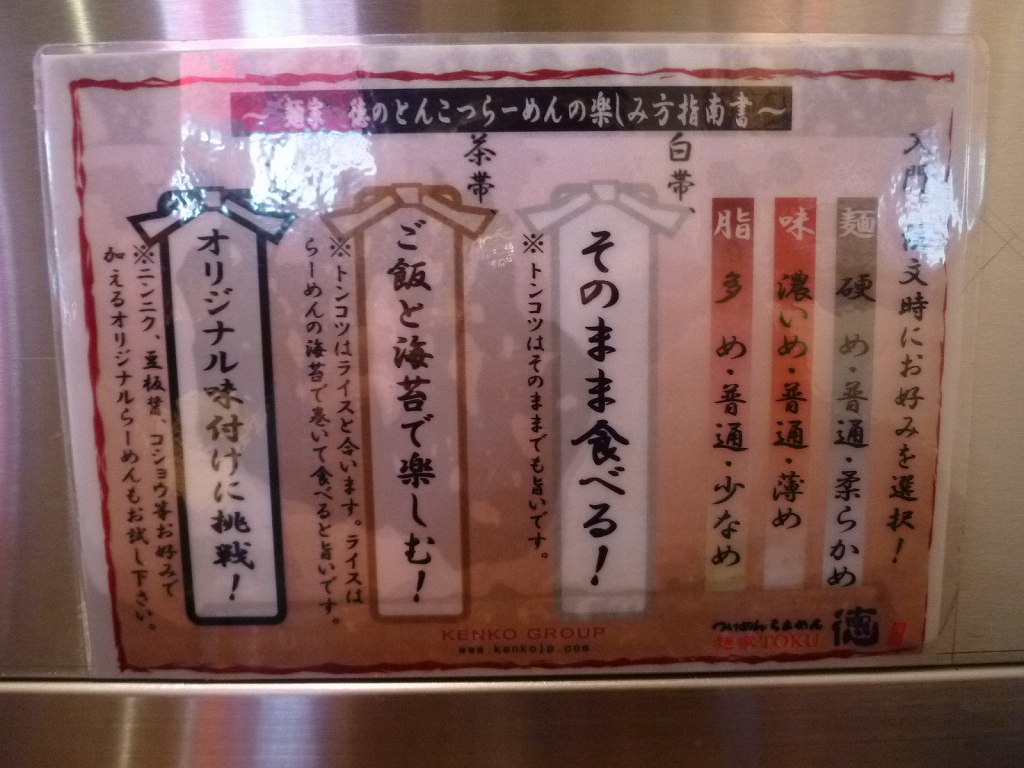 ～麺家 徳のとんこつらーめんの楽しみ方指南書～
入門 文時にお好みを選択！
麺 硬め・普通・柔らかめ
味 濃いめ・普通・薄め
脂 多め・普通・少なめ
白帯、
そのまま食べる！
※トンコツはそのままでも旨いです。
茶帯、
ご飯と海苔で楽しむ！
※トンコツはライスと合います。ライスは
らーめんの海苔で巻いて食べると旨いです。
オリジナル味付けに挑戦！
※ニンニク、豆板醤、コショウ等お好みで
加えるオリジナルらーめんもお試し下さい。
KENKO GROUP
www.kenkojp.com
つけめん らぁめん
麺家TOKU 徳